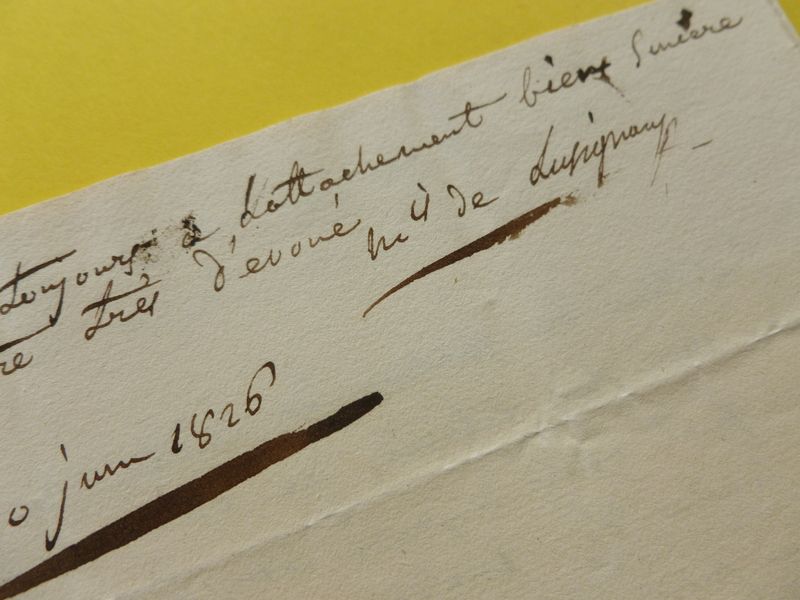 toujours à Lattachement bien Sincere
re très d'evoué
Mis de Lusignan
0 juin 1826